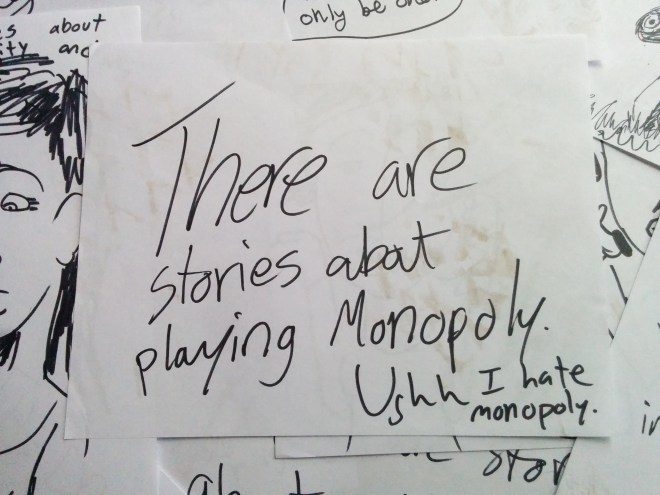 about
and
only be one
There are
stories about
playing Monopoly.
Ughh I hate
monopoly.